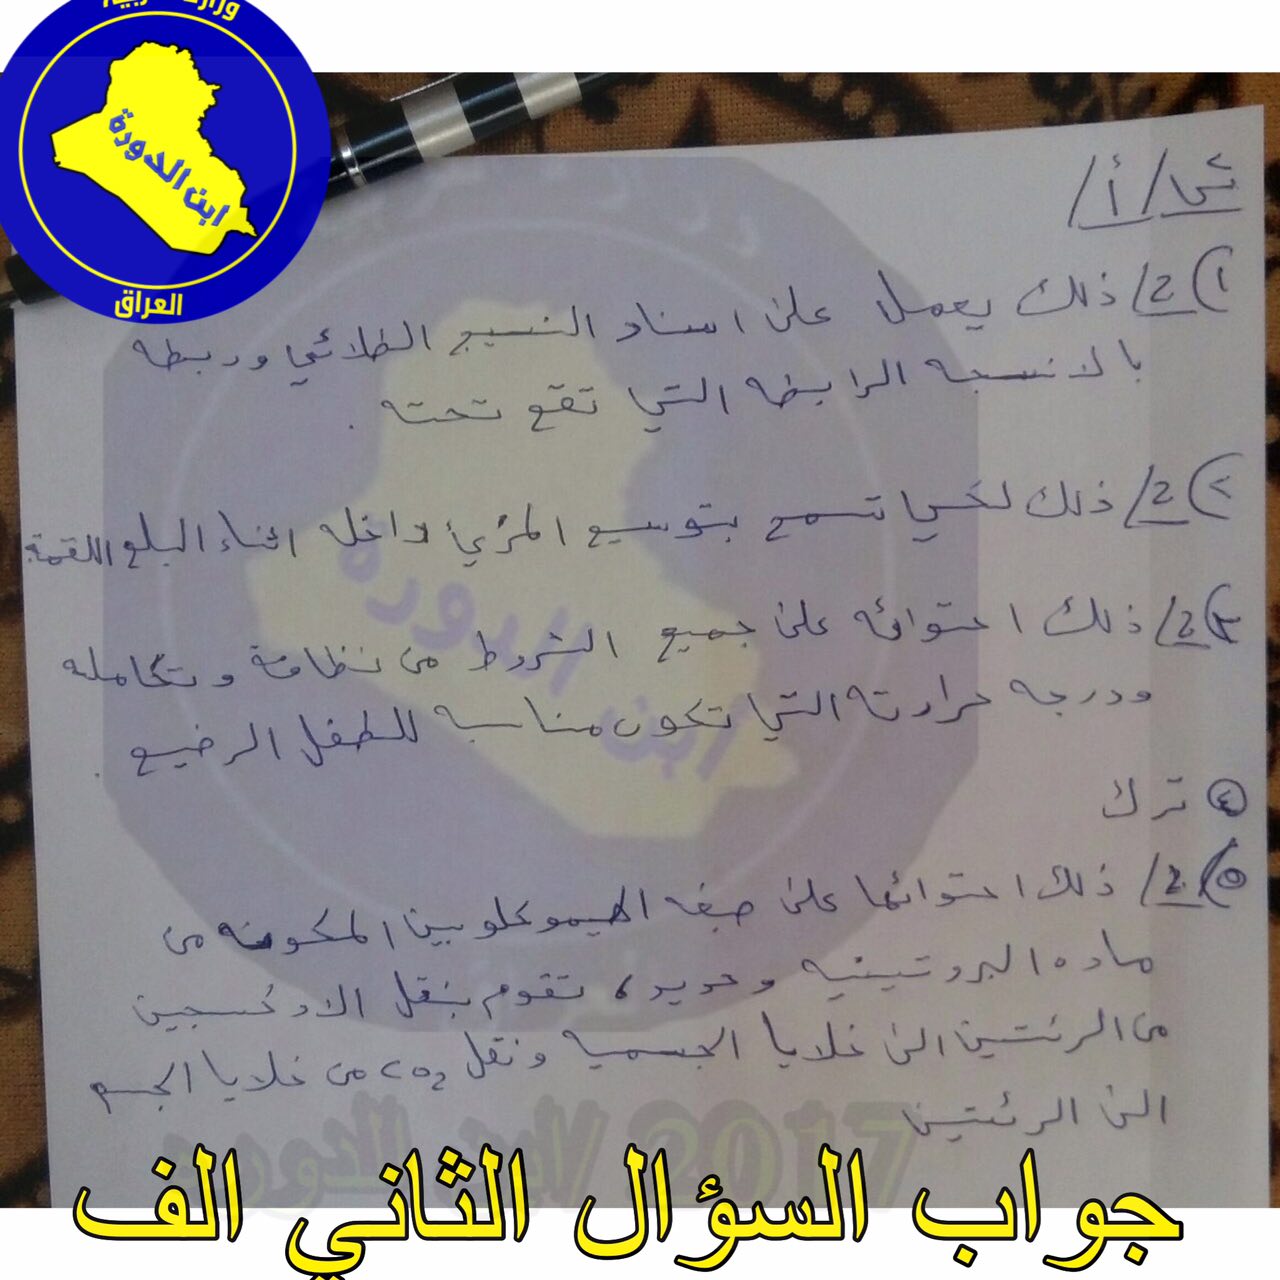 وزارة التربية
ابن الدورة
العراق
س٢/أ/
١) ج/ ذلك يعمل على اسناد النسيج الطلائي وربطه
بالانسجه الرابطه التي تقع تحته .
٢) ج/ ذلك لكي تسمح بتوسيع المرئ داخله اثناء البلع اللقمة.
٣) ج/ ذلك احتوائه على جميع الشروط من نظافة وتكامله
ودرجه حرارته التي تكون مناسبه للطفل الرضيع .
٤ ترك
٥) ج/ ذلك احتوائها على صبغه الهيموكلوبين المكونه من
ماده البروتينيه وحديد، تقوم بنقل الاوكسجين
من الرئتين الى خلايا الجسميه ونقل CO₂ من خلايا الجسم
الى الرئتين
ابن الدورة 2017
جواب السؤال الثاني الف